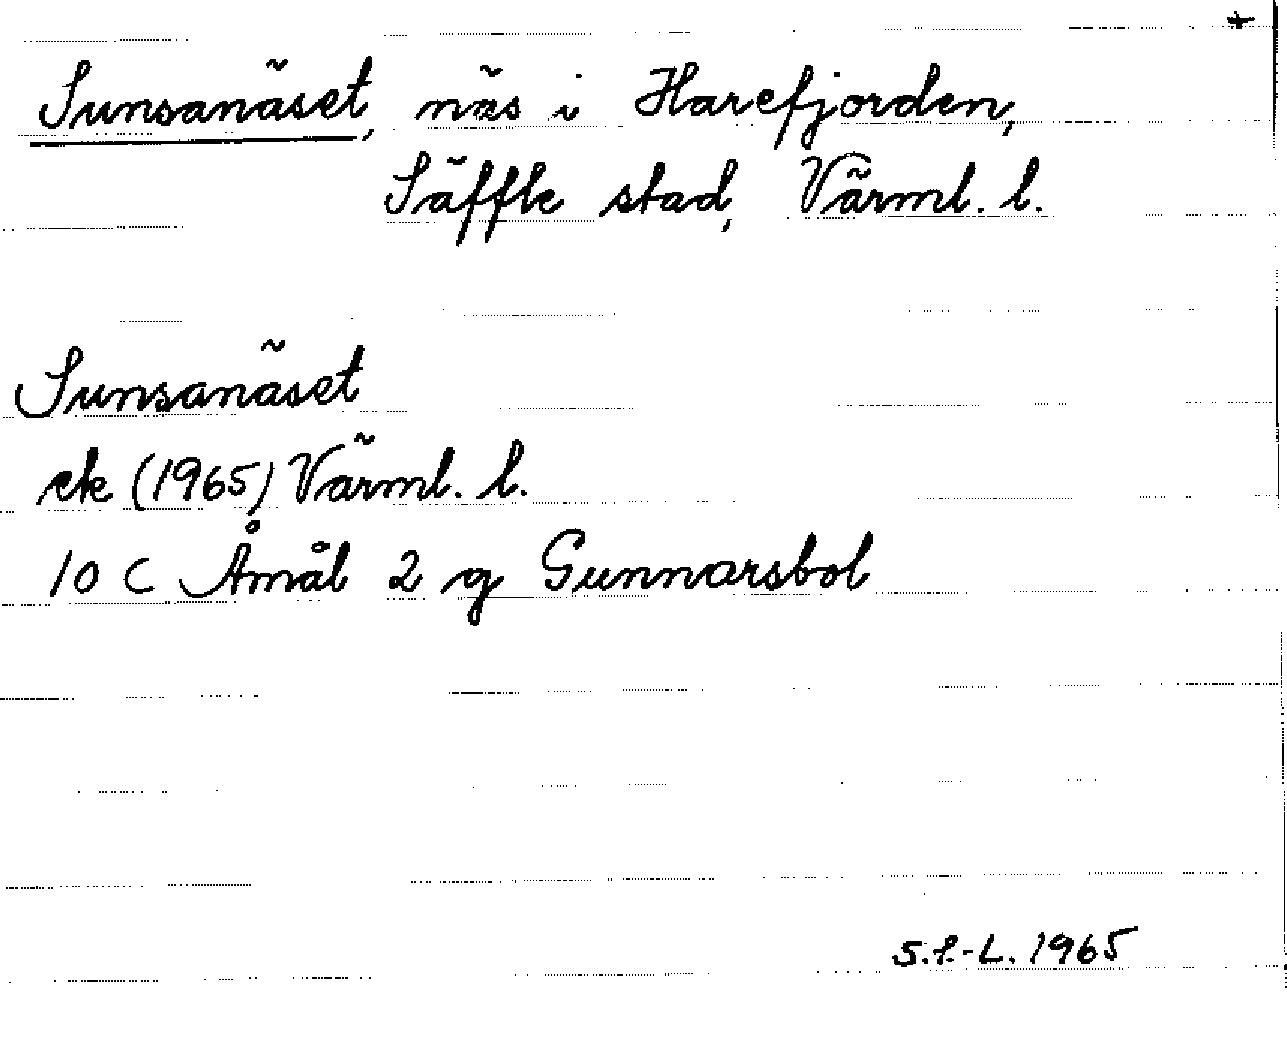 +
Sunsanäset, näs i Harefjorden,
Säffle stad, Värml. l.
Sunsanäset
ek (1965) Värml. l.
10 C Åmål 2 g Gunnarsbol
S.F.-L. 1965